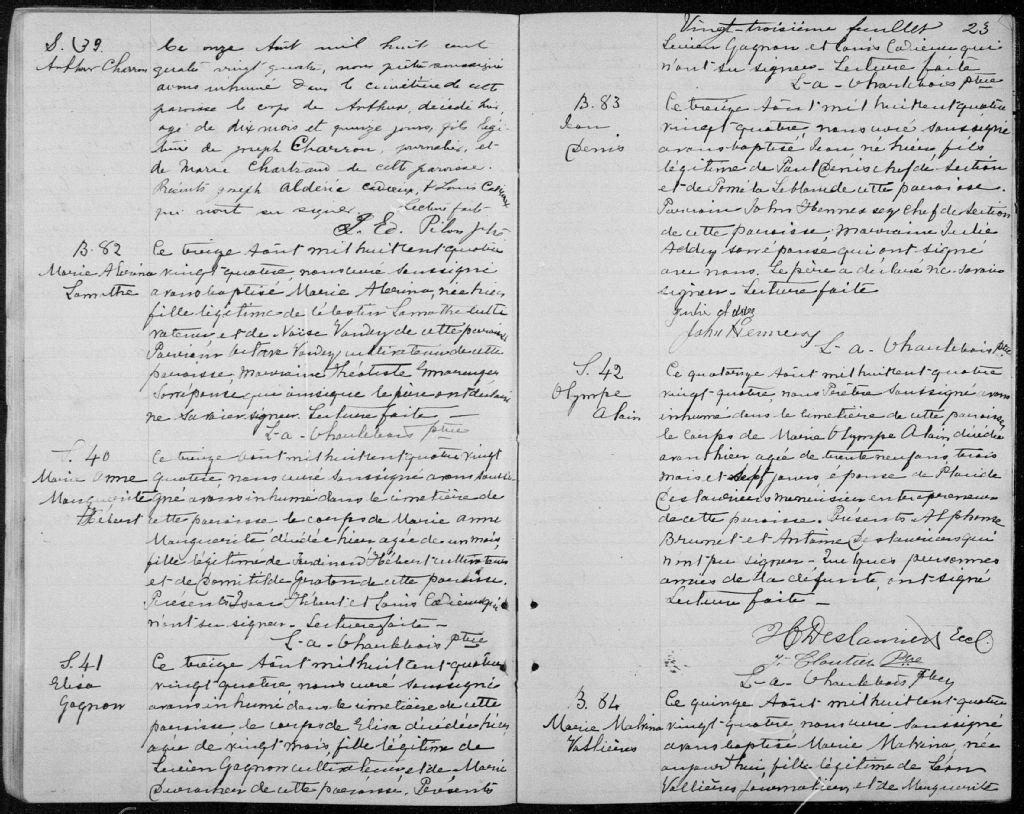 S. 39.
Arthur Charron
Ce onze Août mil huit cent
quatre vingt quatre, nous prêtre soussigné
avons inhumé dans le cimetière de cette
paroisse le corps de Arthur, décédé hier
agé de dix mois et quinze jours, fils légi-
time de Joseph Charron, journalier, et
de Marie Chartrand de cette paroisse.
Présents Joseph Aldéric Cadieux, & Louis Cadieux
qui n'ont su signer. Lecture faite
J. Ed. Pilon ptre
B. 82
Marie
Lamothe
Ce treize Août mil huit cent quatre
vingt-quatre, nous curé soussigné
avons baptisé Marie née hier
fille légitime de Célestin Lamothe culti
vateur, et de Vandry de cette paroisse
Parrain Vandry, cultivateur de cette
paroisse, Marraine Théotiste
son épouse qui ainsi que le père ont déclaré
ne savoir signer. Lecture faite —
L-a- Charlebois ptre
S. 40
Marie Anne
Marguerite
Hébert
Ce treize Août mil huit cent quatre vingt
quatre, nous curé soussigné avons
inhumé dans le cimetière de
cette paroisse le corps de Marie anne
Marguerite décédée hier agée de un mois
fille légitime de Ferdinand Hébert cultivateur
et de Domitilde de cette paroisse.
Présents Isaac Hébert et Louis Cadieux qui
n'ont su signer. Lecture faite —
L-a- Charlebois ptre
S. 41
Elisa
Gagnon
Ce treize Août mil huit cent quatre
vingt quatre, nous curé soussigné
avons inhumé dans le cimetière de cette
paroisse le corps de Elisa décédée hier
agée de vingt mois, fille légitime de
Lucien Gagnon cultivateur et de Marie
de cette paroisse. Présents
Vingt-troisième feuillet 23
Lucien Gagnon et Louis Cadieux qui
n'ont su signer. Lecture faite
L-a- Charlebois ptre
B. 83
Jean
Denis
Ce treize Août mil huit cent quatre
vingt-quatre, nous curé soussigné
avons baptisé Jean, né hier, fils
légitime de Paul Denis chef de section
et de Poméla Leblanc de cette paroisse.
Parrain John Hennessey chef de section
de cette paroisse, marraine Julie
Addey son épouse qui ont signé
avec nous. Le père a déclaré ne savoir
signer. Lecture faite
Julie
John Hennessy
L-a- Charlebois ptre
S. 42
Olympe
Alain
Ce quatorze Août mil huit cent quatre
vingt-quatre nous Prêtre soussigné avons
inhumé dans le cimetière de cette paroisse
le corps de Marie Olympe Alain, décédée
avant hier agée de trente neuf ans, trois
mois et sept jours, épouse de Placide
Deslauriers menuisier entrepreneur
de cette paroisse. Présents Alphonse
Brunet et Antoine Deslauriers qui
n'ont pu signer - Quelques personnes
amies de la défunte, ont signé
Lecture faite —
H Deslauriers Eccl.
J. Cloutier Ptre
L-a- Charlebois, ptre
B. 84
Marie Malvina
Vallières
Ce quinze Août mil huit cent quatre
vingt quatre, nous curé soussigné
avons baptisé Marie Malvina, née
aujourd'hui, fille légitime de Léon
Vallières journalier, et de Marguerite